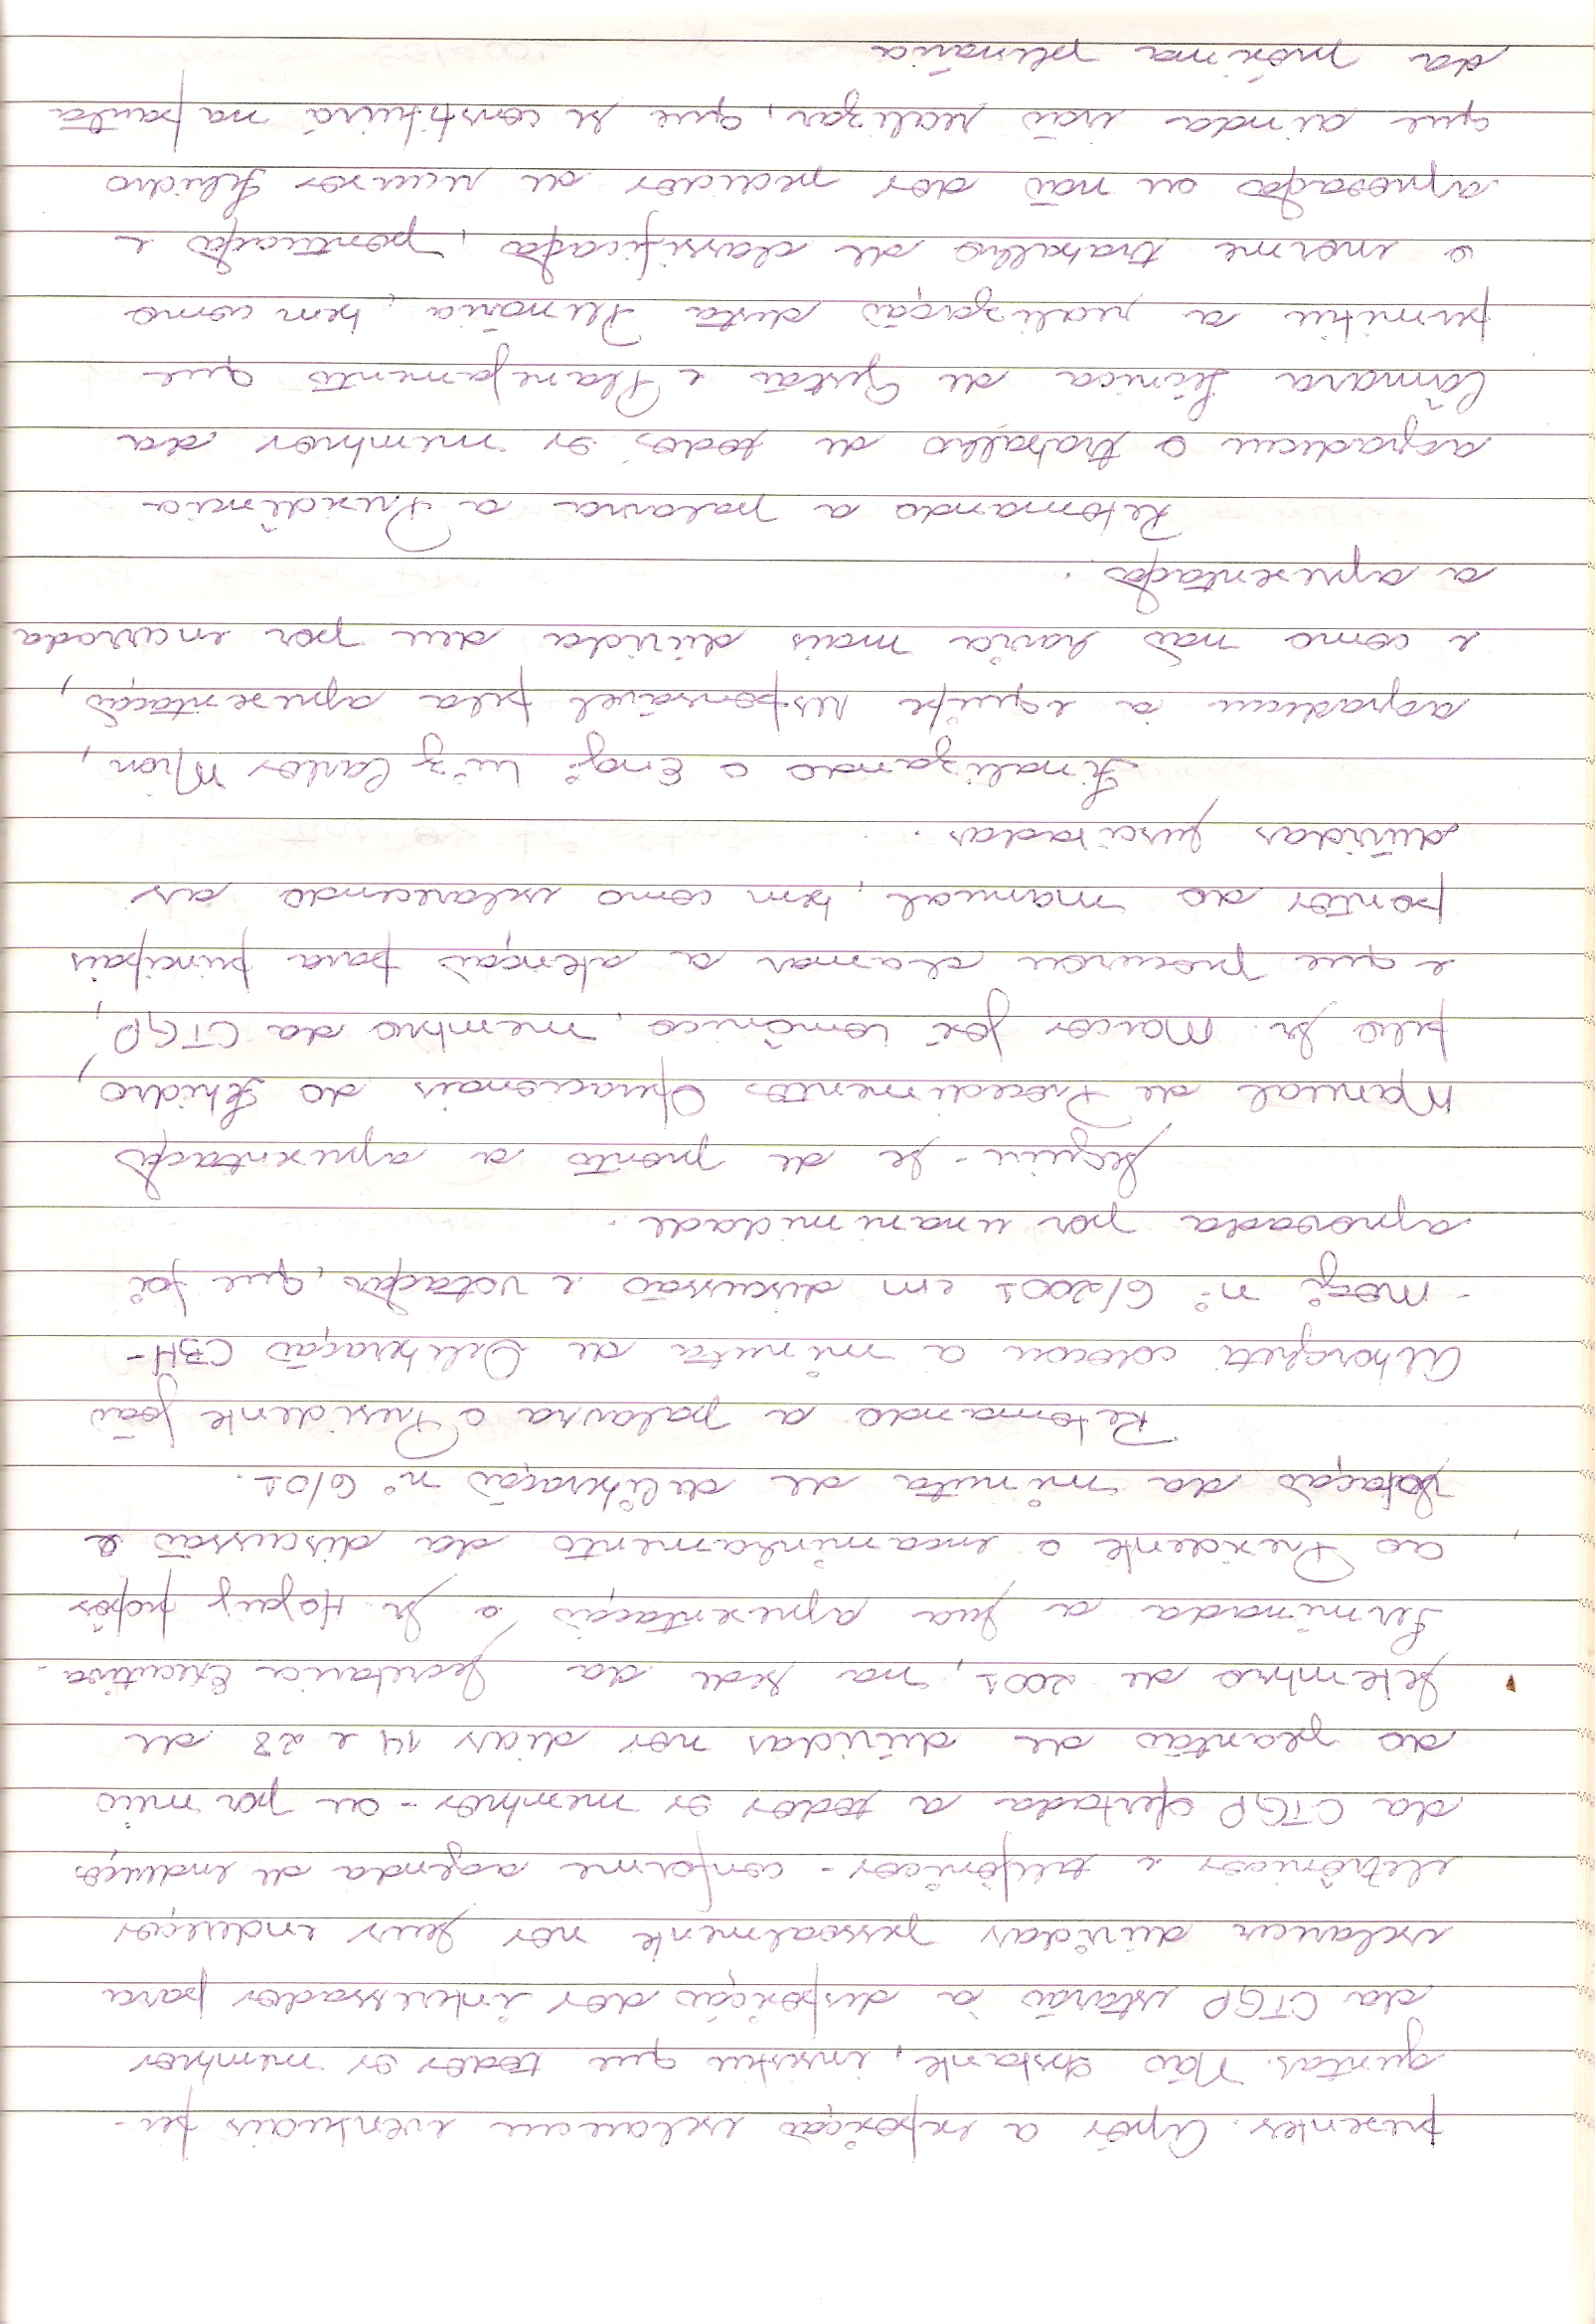 presentes. Após a exposição esclareceu eventuais per-
guntas. Não obstante, insistiu que todos os membros
da CTGP estarão à disposição dos interessados para
esclarecer dúvidas pessoalmente nos seus endereços
eletrônicos e telefônicos - conforme agenda de endereços
da CTGP ofertada a todos os membros - ou por meio
do plantão de dúvidas nos dias 14 e 28 de
setembro de 2001, na sede da Secretaria Executiva.
Terminada a sua apresentação o Sr. propôs
ao Presidente o encaminhamento da discussão e
votação da minuta de deliberação nº 6/01.
Retomando a palavra o Presidente João
Alborgheti colocou a minuta de Deliberação CBH-
-MOGI nº 6/2001 em discussão e votação, que foi
aprovada por unanimidade.
Seguiu-se de pronto a apresentação
Manual de Procedimentos Operacionais do Fehidro,
pelo Sr. Marcos José Lomônico, membro da CTGP,
e que procurou chamar a atenção para principais
pontos do manual, bem como esclarecendo as
dúvidas suscitadas.
Finalizando o Engº Luiz Carlos Miron,
agradeceu à equipe responsável pela apresentação,
e como não havia mais dúvida deu por encerrada
a apresentação.
Retomando a palavra a Presidência
agradeceu o trabalho de todos os membros da
Câmara Técnica de Gestão e Planejamento que
permitiu a realização desta Plenária, bem como
o enorme trabalho de classificação, pontuação e
aprovação ou não dos pedidos de recursos Fehidro
que ainda irão realizar, que se constituirá na pauta
da próxima plenária